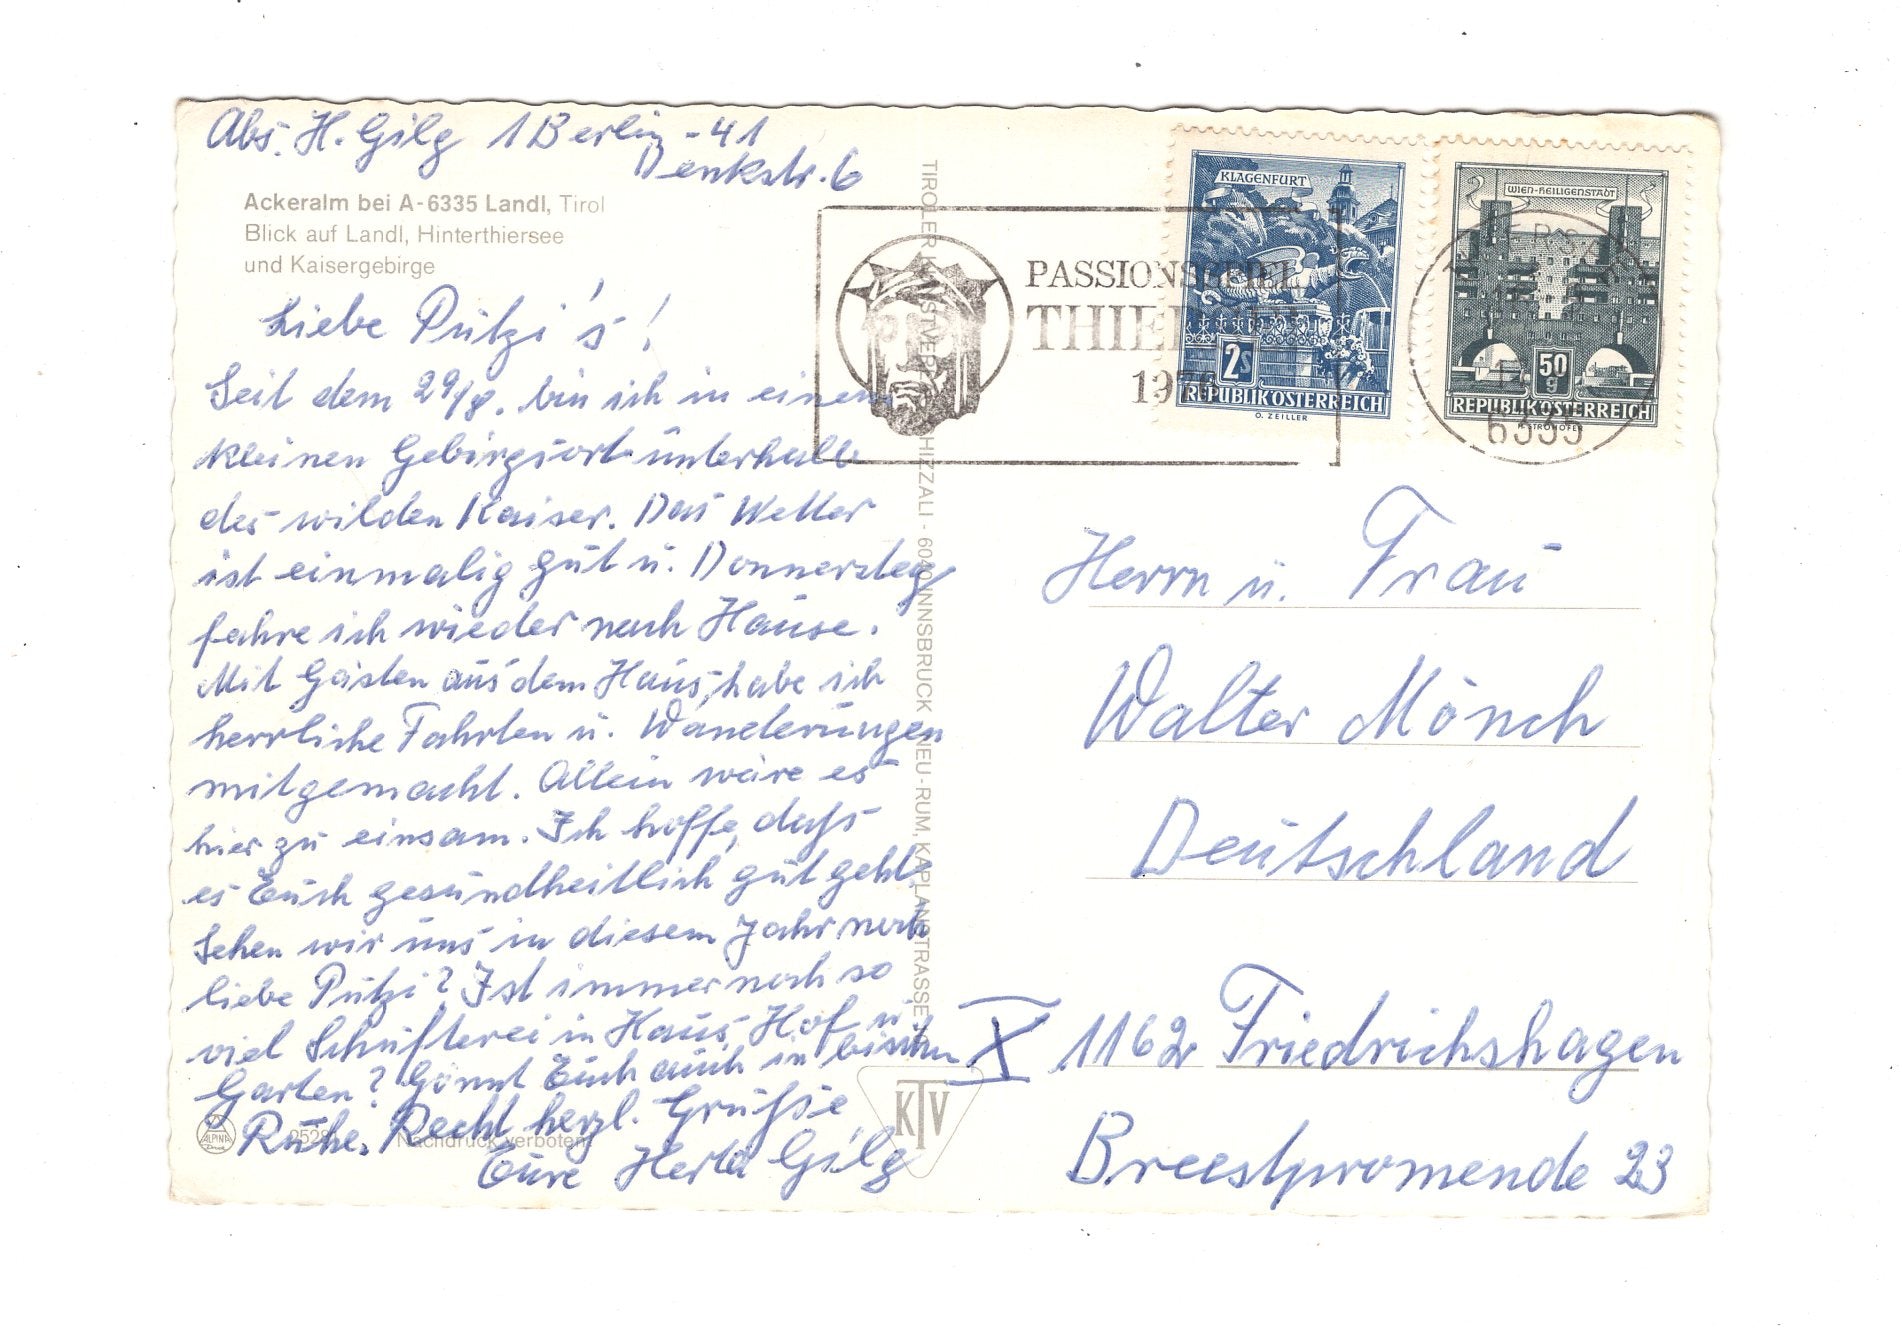 Abs. H. Gilg 1 Berlin - 41
Denkstr. 6
Ackeralm bei A-6335 Landl, Tirol
Blick auf Landl, Hinterthiersee
und Kaisergebirge
Liebe Putzi's!
Seit dem 29/8. bin ich in einem
kleinen Gebirgsort unterhalb
des wilden Kaiser. Das Wetter
ist einmalig gut u. Donnerstag
fahre ich wieder nach Hause.
Mit Gästen aus dem Haus, habe ich
herrliche Fahrten u. Wanderungen
mitgemacht. Allein wäre es
hier zu einsam. Ich hoffe, daß
es Euch gesundheitlich gut geht.
Sehen wir uns in diesem Jahr noch
liebe Putzi? Ist immer noch so
viel Schufterei in Haus, Hof u.
Garten? Gönnt Euch auch in bischen
Ruhe. Recht herzl. Grüße
Eure Herta Gilg
ALPINA
2528
Nachdruck verboten
TIROLER KUNSTVERLAG CHIZZALI - 6040 INNSBRUCK NEU-RUM, KAPLANSTRASSE
KTV
PASSIONSSPIEL
THIERSEE
1970
KLAGENFURT
2s
REPUBLIK ÖSTERREICH
O. ZEILLER
WIEN-HEILIGENSTADT
50
g
REPUBLIK ÖSTERREICH
H. STROHOFER
6335
Herrn u. Frau
Walter Mönch
Deutschland
X 1162 Friedrichshagen
Breestpromende 23